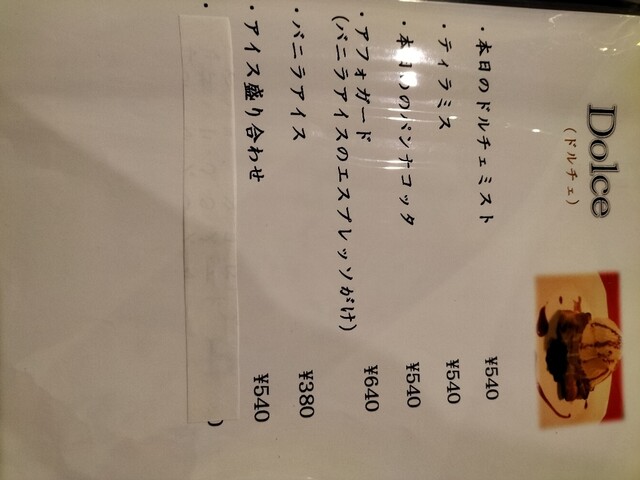 Dolce
(ドルチェ)
・本日のドルチェミスト ¥540
・ティラミス ¥540
・本日のパンナコッタ ¥540
・アフォガード
(バニラアイスのエスプレッソがけ) ¥640
・バニラアイス ¥380
・アイス盛り合わせ ¥540